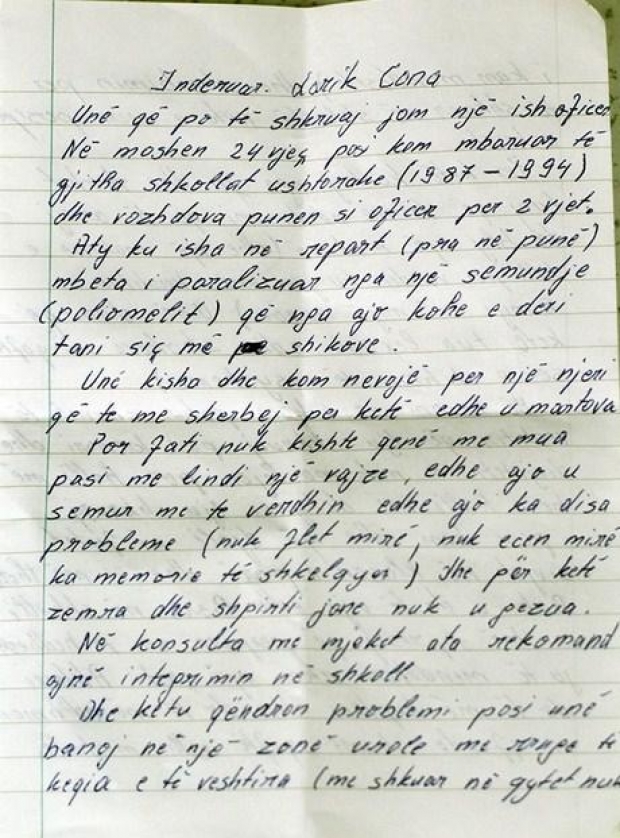 Inderuar. Lorik Cana
Unë që po të shkruaj jam një ish oficer
Në moshen 24 vjeç pasi kam mbaruar të
gjitha shkollat ushtarake (1987 – 1994)
dhe vazhdova punen si oficer per 2 vjet.
Aty ku isha në repart (pra në punë)
mbeta i paralizuar nga një semundje
(poliomelit) që nga ajo kohe e deri
tani siç më shikove.
Unë kisha dhe kam nevojë per një njeri
që te me sherbej per ketë edhe u martova
Por fati nuk kishte qenë me mua
pasi me lindi një vajze, edhe ajo u
semur me te verdhin edhe ajo ka disa
probleme (nuk flet mirë, nuk ecen mirë
ka memorie të shkelqyer) dhe për ketë
zemra dhe shpirti jone nuk u gezua.
Në konsulta me mjeket ata rekomand
ojnë integrimin në shkoll.
Dhe ketu qëndron problemi pasi unë
banoj në një zonë urole me rruge të
keqia e të veshtira (me shkuar në qytet nuk